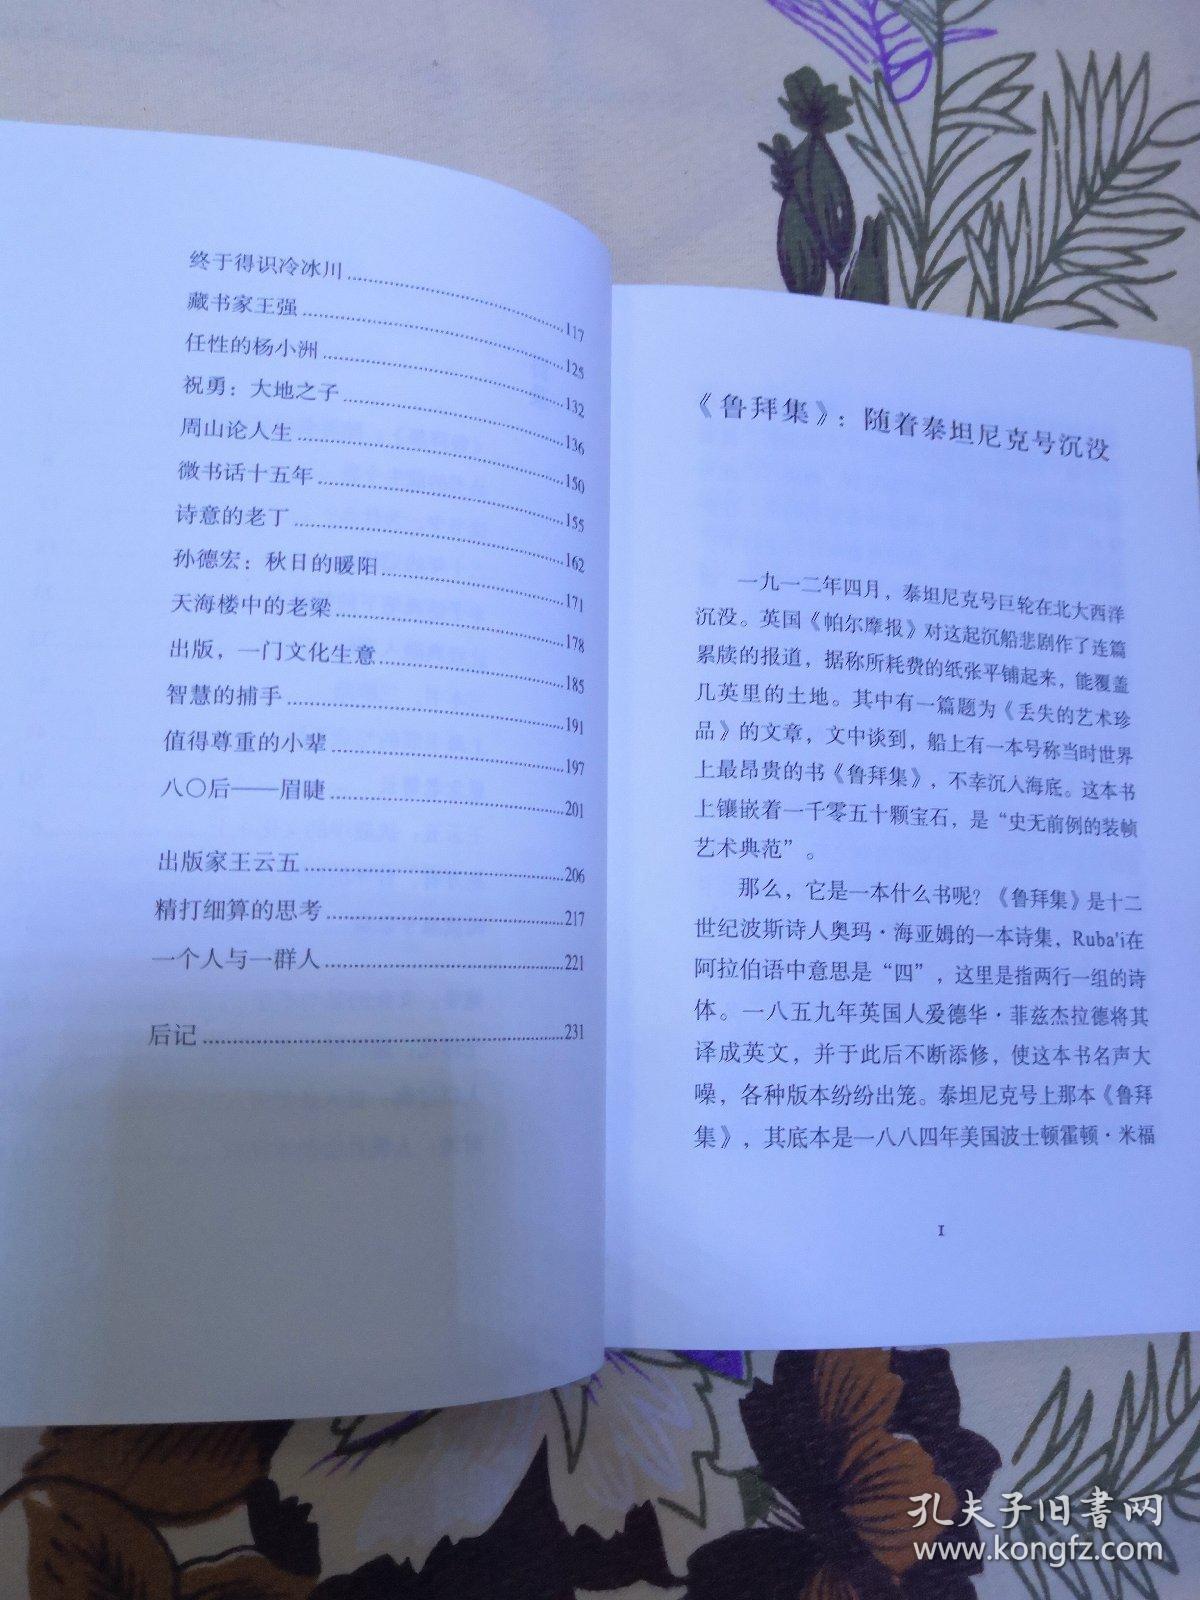 终于得识冷冰川 117
藏书家王强 125
任性的杨小洲 132
祝勇：大地之子 136
周山论人生 150
微书话十五年 155
诗意的老丁 162
孙德宏：秋日的暖阳 171
天海楼中的老梁 178
出版，一门文化生意 185
智慧的捕手 191
值得尊重的小辈 197
八〇后——眉睫 201
出版家王云五 206
精打细算的思考 217
一个人与一群人 221
后记 231
《鲁拜集》：随着泰坦尼克号沉没
一九一二年四月，泰坦尼克号巨轮在北大西洋
沉没。英国《帕尔摩报》对这起沉船悲剧作了连篇
累牍的报道，据称所耗费的纸张平铺起来，能覆盖
几英里的土地。其中有一篇题为《丢失的艺术珍
品》的文章，文中谈到，船上有一本号称当时世界
上最昂贵的书《鲁拜集》，不幸沉入海底。这本书
上镶嵌着一千零五十颗宝石，是“史无前例的装帧
艺术典范”。
那么，它是一本什么书呢？《鲁拜集》是十二
世纪波斯诗人奥玛·海亚姆的一本诗集，Ruba'i在
阿拉伯语中意思是“四”，这里是指两行一组的诗
体。一八五九年英国人爱德华·菲兹杰拉德将其
译成英文，并于此后不断添修，使这本书名声大
噪，各种版本纷纷出笼。泰坦尼克号上那本《鲁拜
集》，其底本是一八八四年美国波士顿霍顿·米福
1
孔夫子旧書网
www.kongfz.com